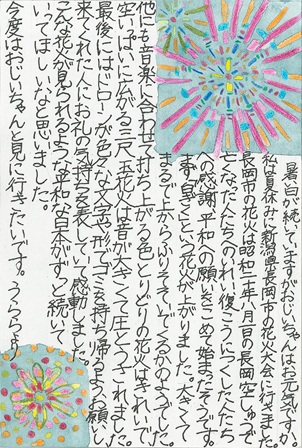 暑い日が続いてますがおじいちゃんはお元気ですか。
私は夏休みに新潟県長岡市の花火大会に行きました。
長岡市の花火は昭和二十年八月一日の長岡空しゅうで
亡くなった人たちへのいれい、復こうにつくした人たち
への感謝、平和への願いをこめて始まったそうです。
まず白くという花火が上がりました。大きくて
まるで上からふりそそいでくるかのようでした。
他にも音楽に合わせて打ち上がる色とりどりの花火はきれいで、
空いっぱいに広がる三尺玉花火は音が大きくて圧とうされました。
最後にはドローンが色々な文字や形でゴミを持ち帰るよう願い、
来てくれた人にお礼の気持ちを表していて感動しました。
こんな花火が見られるような平和な日本がずっと続いて
いってほしいなと思いました。
今度はおじいちゃんと見に行きたいです。うららより